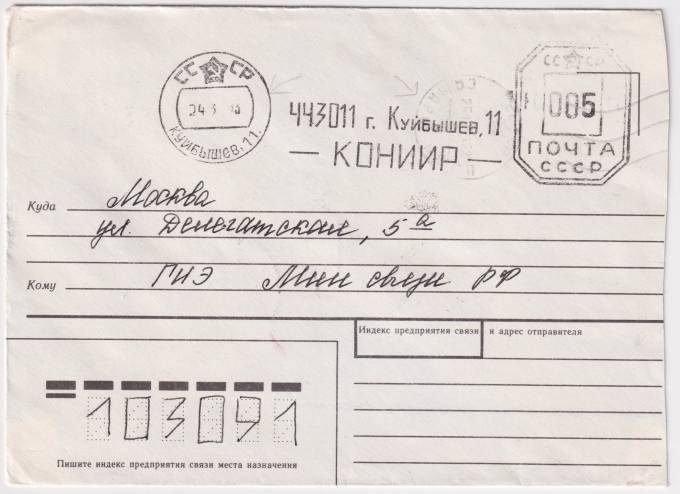 СССР
24.3
КУЙБЫШЕВ, 11.
443011 г. КУЙБЫШЕВ, 11
— КОНИИР —
СССР
005
ПОЧТА
СССР
Куда Москва
ул. Делегатская, 5а
Кому ГИЭ Мин связи РФ
Индекс предприятия связи и адрес отправителя
103091
Пишите индекс предприятия связи места назначения